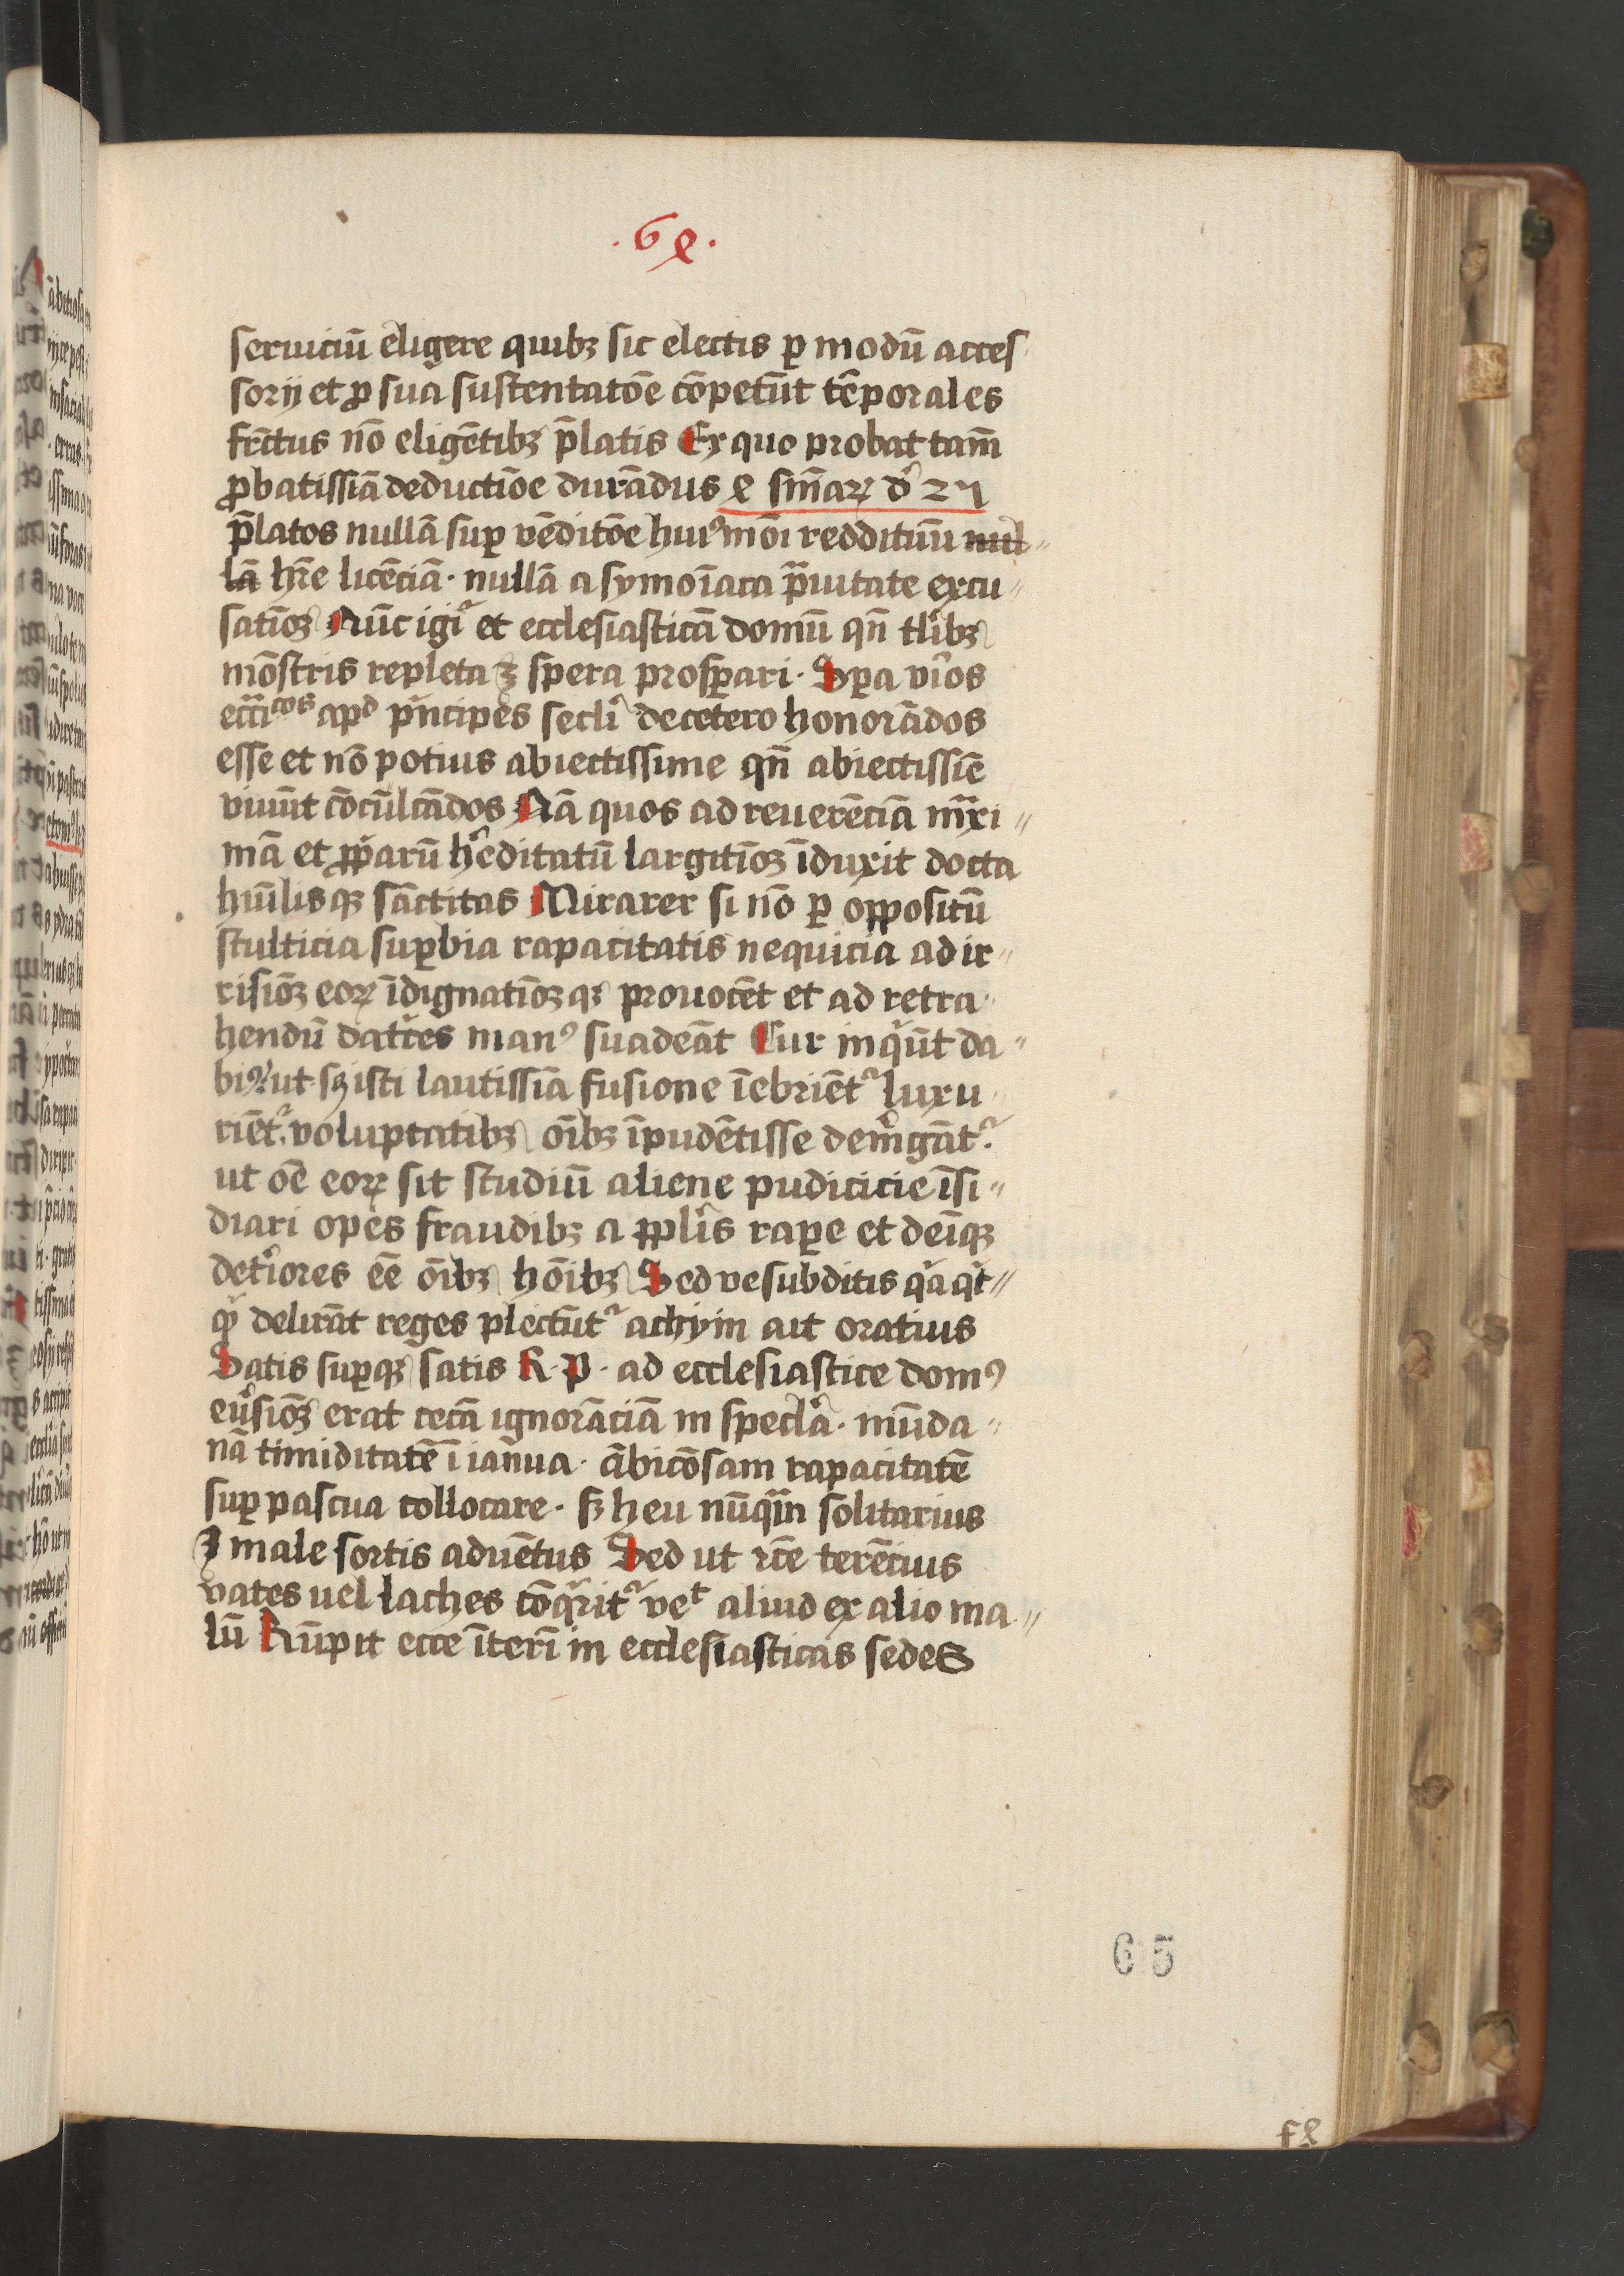 .6ꝭ.
seruiciū eligere quibꝫ sic electis ꝑ modū acces
sorij et ꝓ sua sustentatōe cōpetūt tēporales
frc̄tus nō eligētibꝫ p̄latis Ex quo probat tam̄
ꝓbatissīa deductiōe durādus
p̄latos nullā suꝑ vēditōe huiꝰmōi reddituū nul
lā hr̄e licēciā · nullā a symoīaca p̄uitate excu
satiōꝫ Nūc igiᷣ et ecclesiasticā domū qn̄ tlībꝫ
mōstris repleta ꝫ spera prosꝑari · Sꝑa vīos
eccīcos apd pn̄cipes secli decetero honorādos
esse et nō potius abiectissime qn̄ abiectissīe
viuūt cōculcādos Nā quos ad reuerēciā mxī
mā et ꝓp̄arū h̄editatū largitiōꝫ īduxit docta
hūilisqꝫ sāctitas Mirarer si nō ꝑ oppositū
stulticia suꝑbia rapacitatis nequicia ad ir
risiōꝫ eoꝝ īdignatiōꝫqꝫ prouocēt et ad retra
hendū datr̄es manꝰ suadeāt Cur inqͥūt da
bit᷑ ut isti lautissīa fusione īebriēt᷑ luxu
riēt᷑ voluptatibꝫ oībꝫ īpudētisse dem̄gāt᷑
ut oē eoꝝ sit studiū aliene pudicicie īsi
diari opes fraudibꝫ a pplīs raꝑe et deīqꝫ
det̄iores eē oībꝫ hoībꝫ Sed ve subditis qͣ qͥ
qͥ delirāt reges plectūt᷑ achyui ait oratius
Satis suꝑqꝫ satis R · P · ad ecclesiastice domꝰ
eūsiōꝫ erat cecā ignorāciā in specl̄a · mūda
nā timiditatē ī ianua · ābicōsam rapacitatē
suꝑ pascua collocare · sꝫ heu nūqͣm solitarius
I male sortis aduētus Sed ut rc̄e terēcius
vates uel laches cōqͥrit᷑ vet aliud ex alio ma
lū Rūpit ecce īterī in ecclesiasticas sedes
65